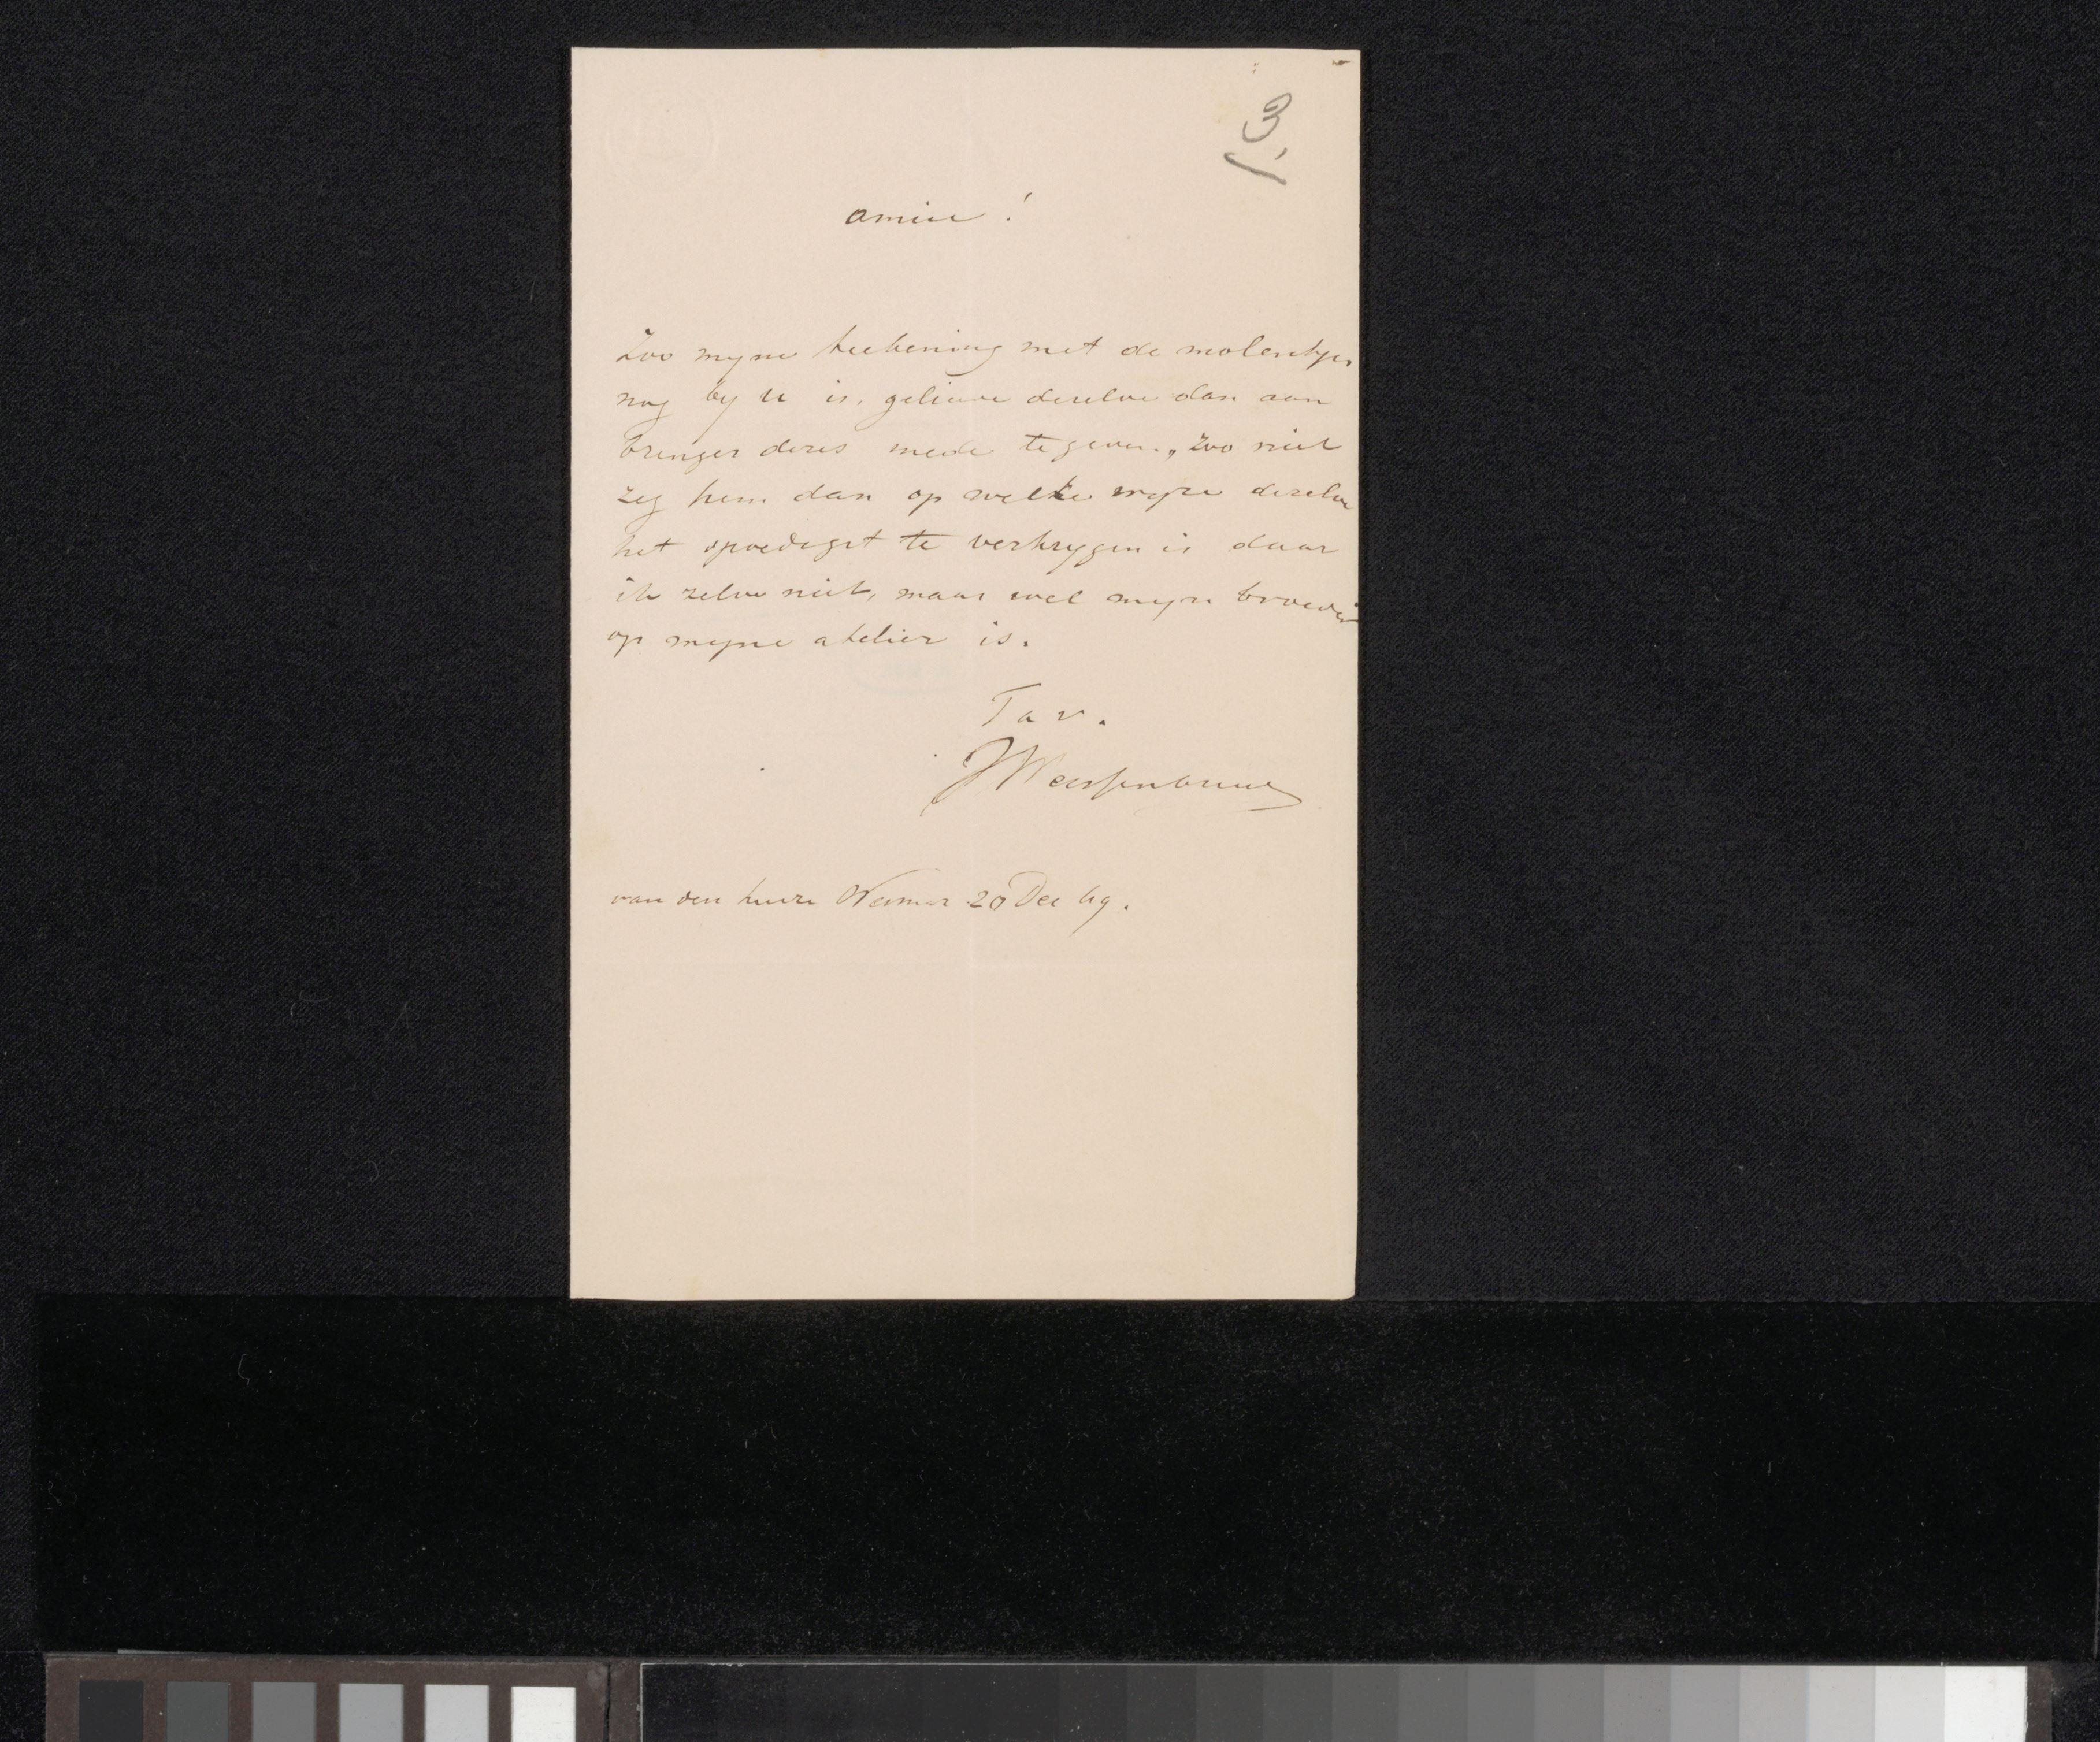 13.
Amice!
Zoo myne teekening met de molentjes
nog by u is, gelieve dezelve dan aan
brenger dezes mede te geven., zoo niet
zeg hem dan op welke wyze dezelve
het spoedigst te verkrygen is daar
ik zelve niet, maar wel myn broeder
op myne atelier is.
Tav.
JWeissenbruch
van den heere Weimar 20 Dec 69.